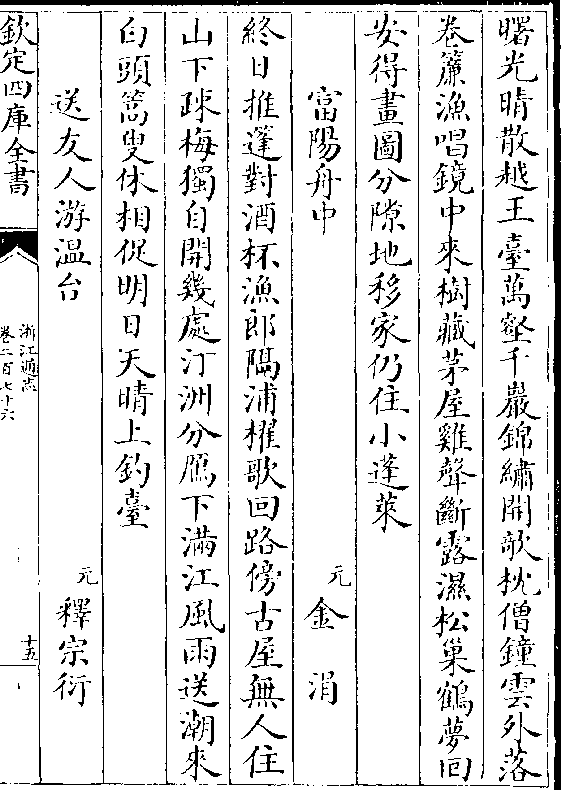 曙光晴散越王臺萬壑千巖錦繡開欹枕僧鐘雲外落
卷簾漁唱鏡中來樹藏茅屋雞聲斷露濕松巢鶴夢回
安得畫圖分隙地移家仍住小蓬萊
富陽舟中
元
金涓
終日推蓬對酒杯漁郎隔浦櫂歌回路傍古屋無人住
山下疎梅獨自開幾處汀洲分鴈下滿江風雨送潮來
白頭篙叟休相促明日天晴上釣臺
送友人游温台
元
釋宗衍
欽定四庫全書
浙江通志
卷二百七十六
十五